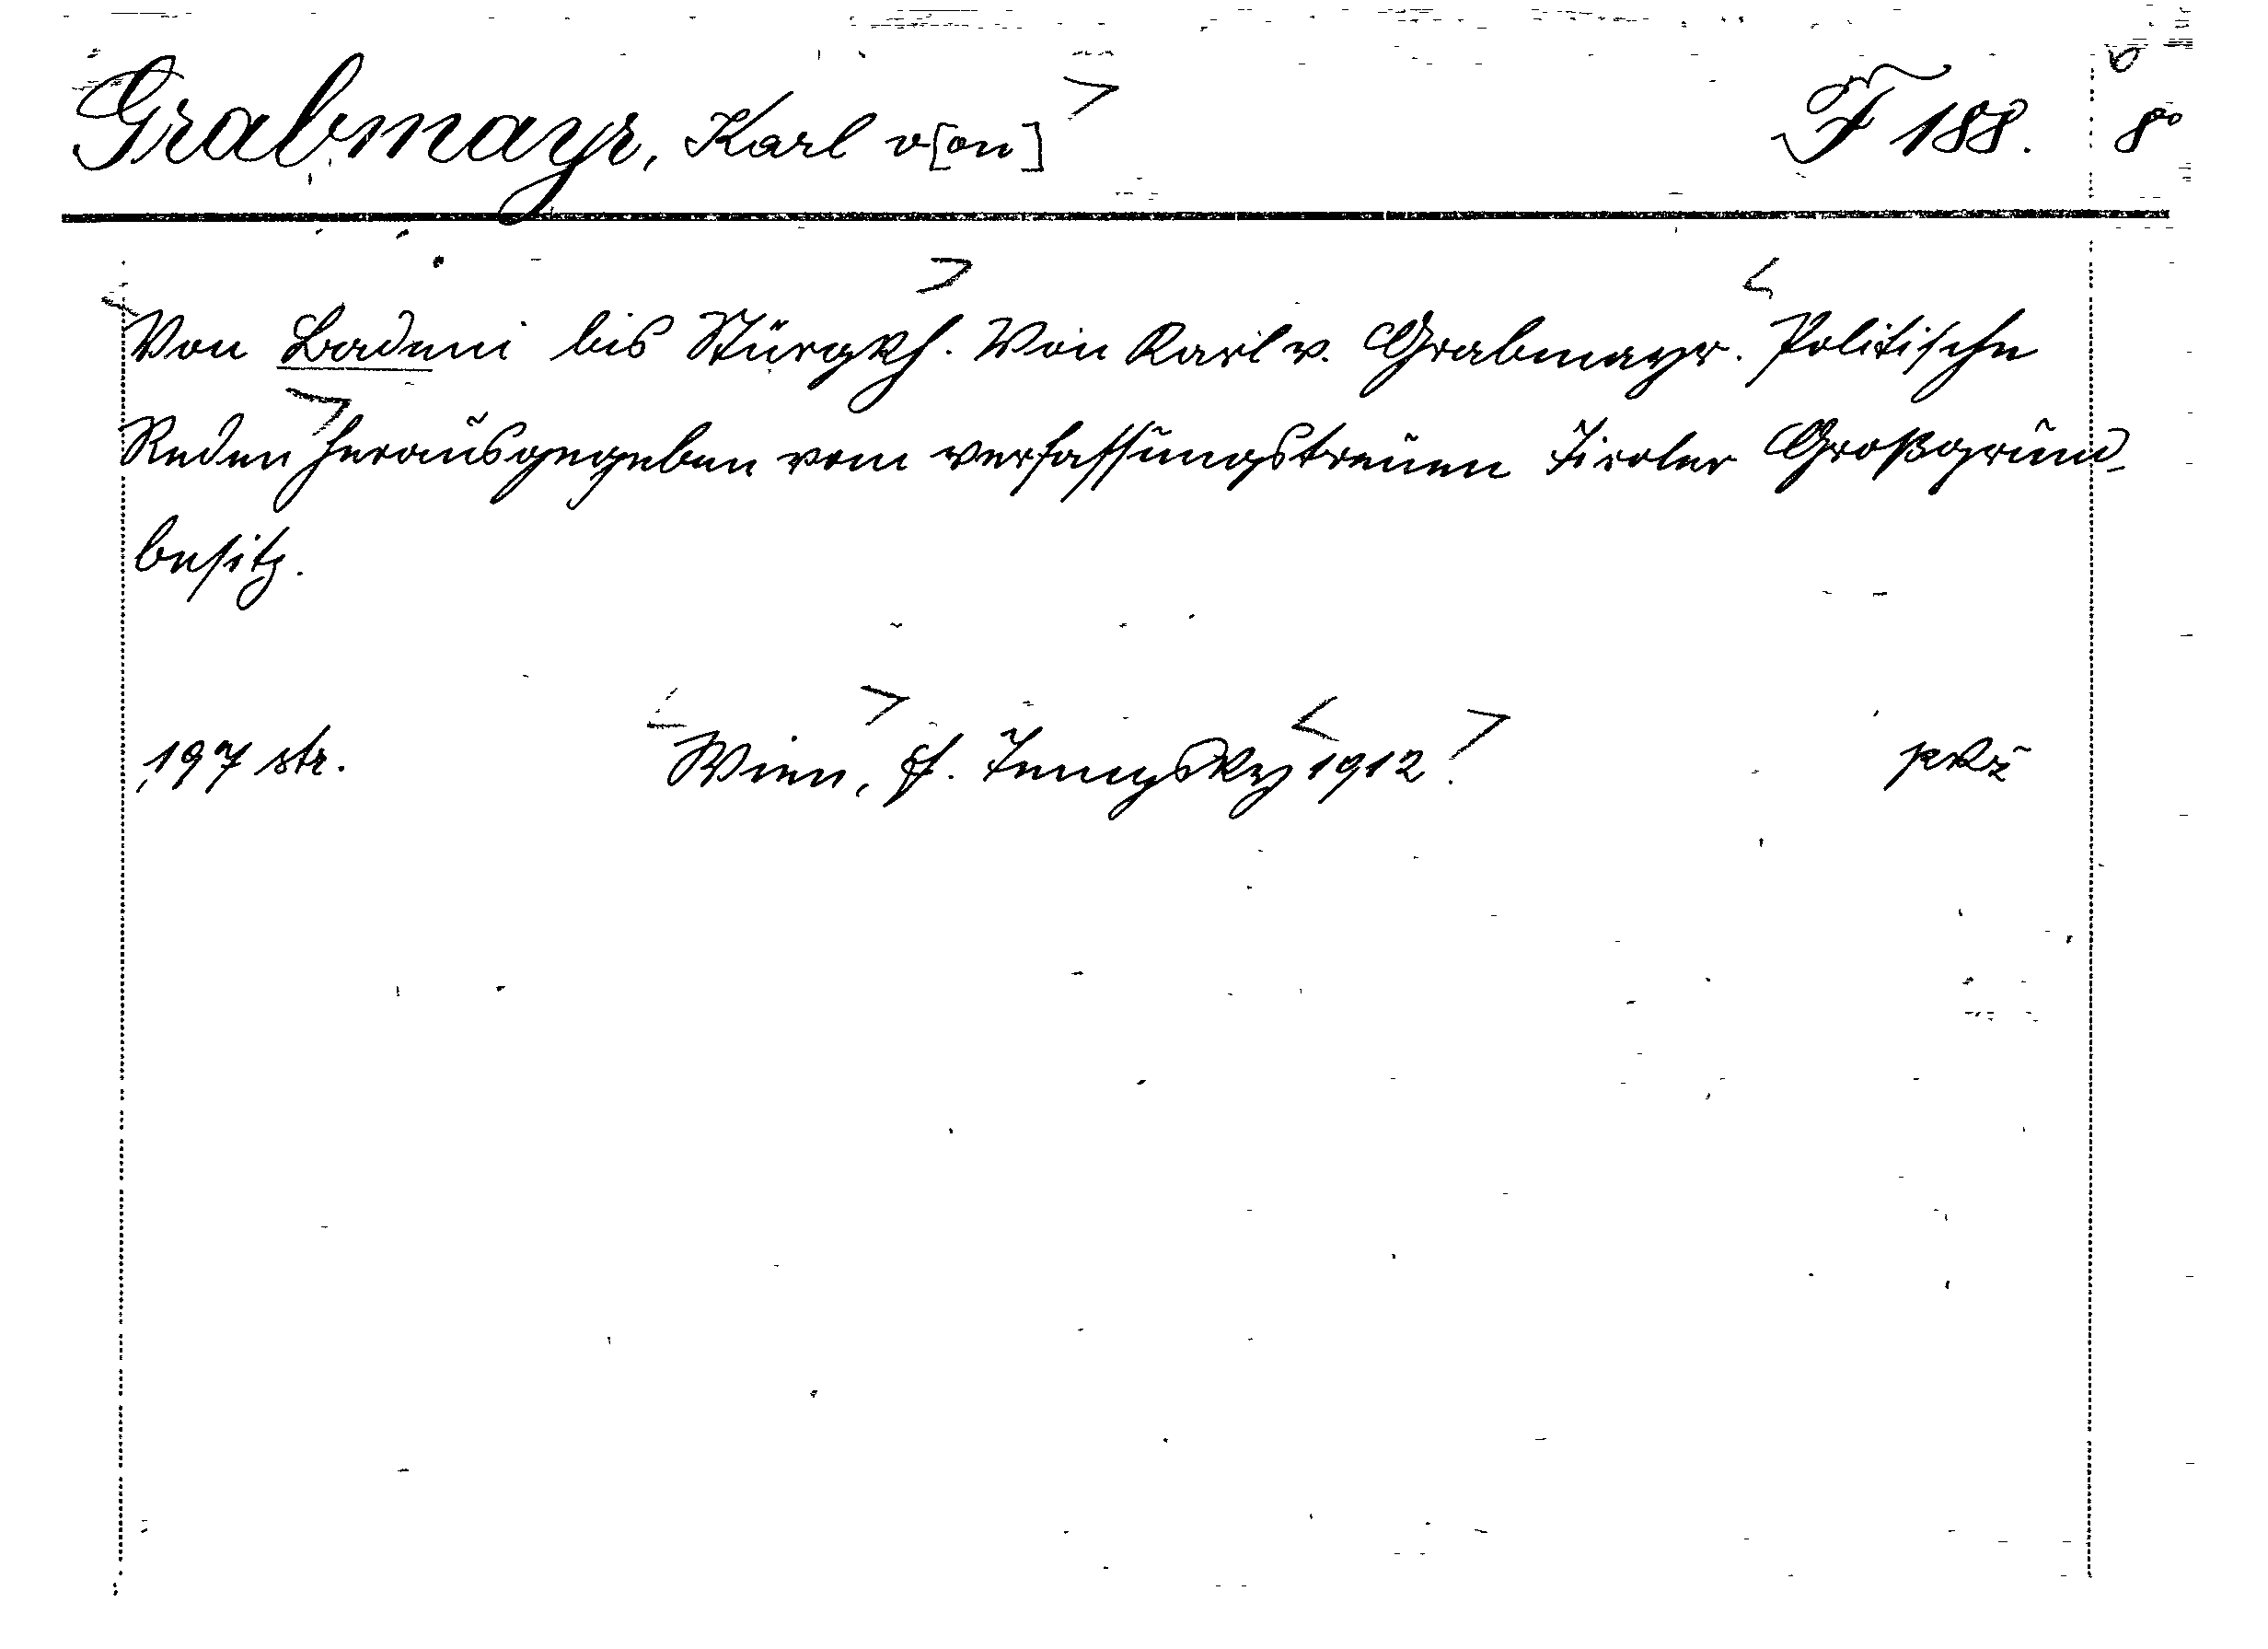 Grabmayr, Karl v[on] F 188. 8°
Von Badeni bis Stürgkh. Von Karl v. Grabmayr. Politische
Reden herausgegeben vom verfassungstreuen Tiroler Großgrund-
besitz.
197 str. Wien, F. Tempsky 1912.